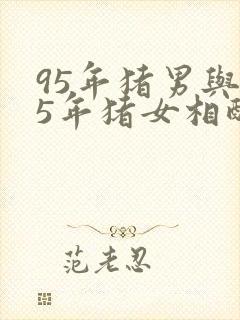 95年猪男與
5年猪女相
范老忍